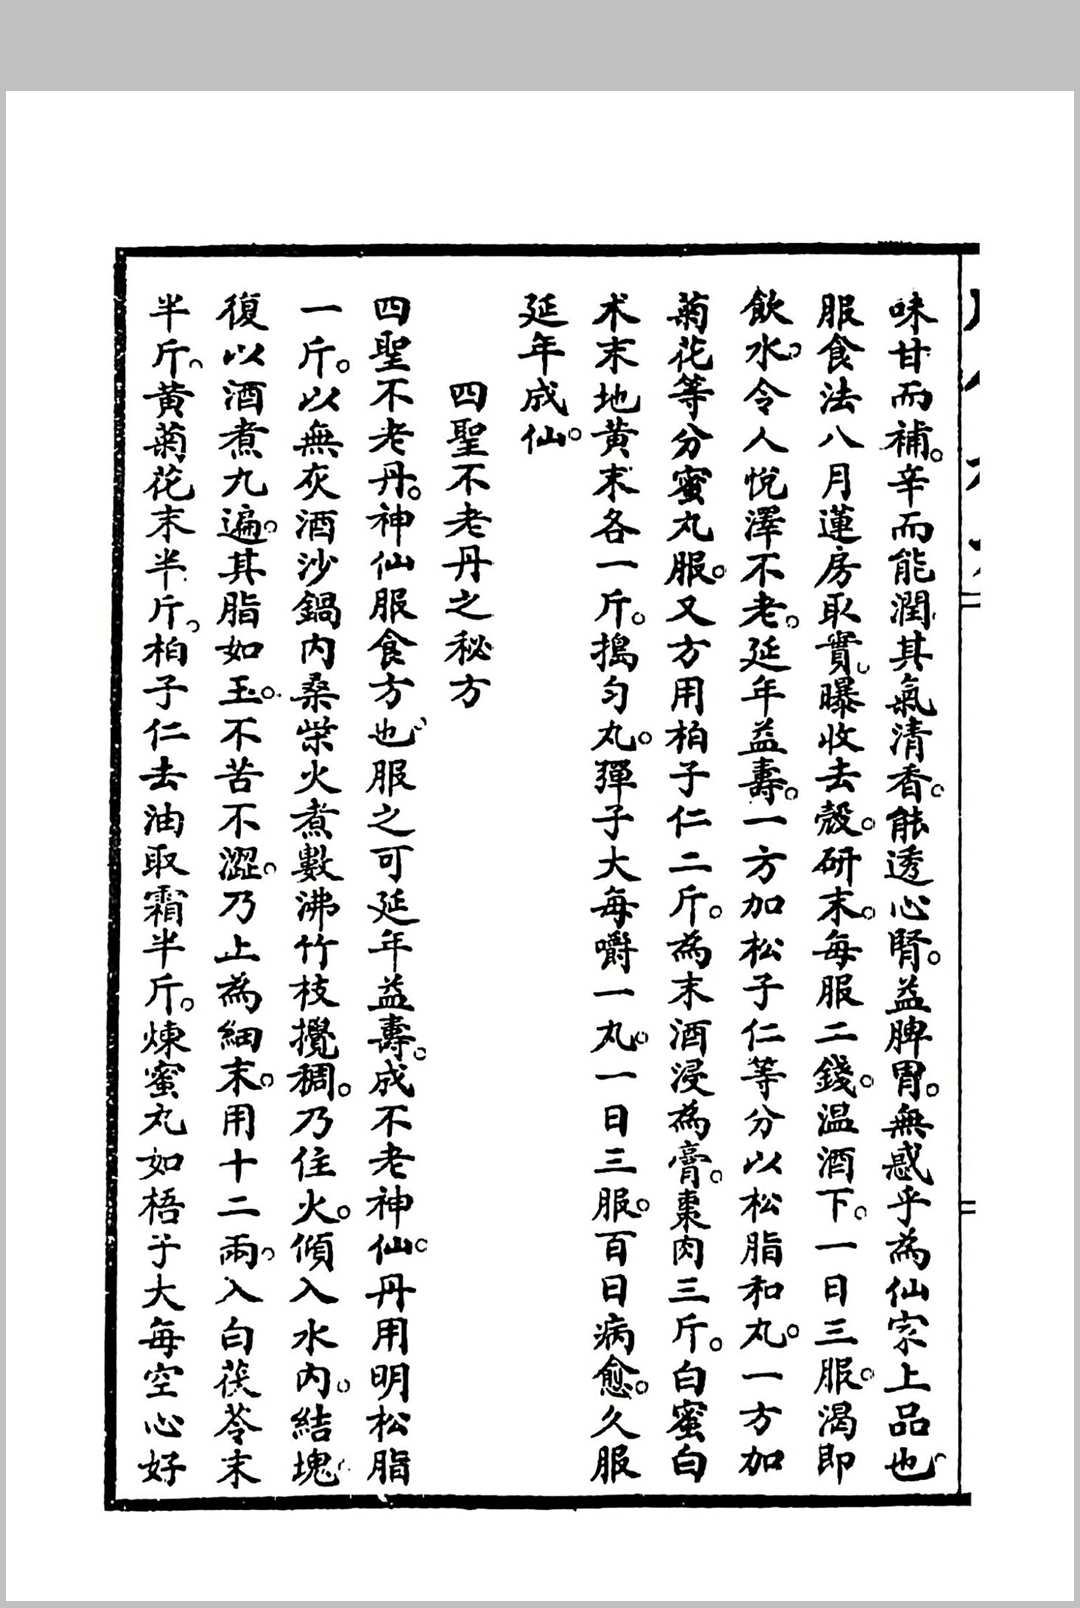 味甘而補。辛而能潤。其氣清香。能透心腎。益脾胃。無惑乎為仙家上品也。
服食法八月蓮房取實。曝收去殼。研末。每服二錢。温酒下。一日三服。渴即
飲水。令人悅澤不老。延年益壽。一方加松子仁等分以松脂和丸。一方加
菊花等分蜜丸服。又方用柏子仁二斤。為末酒浸為膏。棗肉三斤。白蜜白
术末地黄末各一斤。搗匀丸。彈子大每嚼一丸。一日三服。百日病愈。久服
延年成仙。
四聖不老丹之秘方
四聖不老丹。神仙服食方也。服之可延年益壽。成不老神仙。丹用明松脂
一斤。以無灰酒沙鍋內桑柴火煮數沸竹枝攪稠。乃住火。傾入水內。結塊。
復以酒煮九遍。其脂如玉。不苦不澀。乃上為細末。用十二兩。入白茯苓末
半斤。黄菊花末半斤。柏子仁去油取霜半斤。煉蜜丸如梧子大每空心好